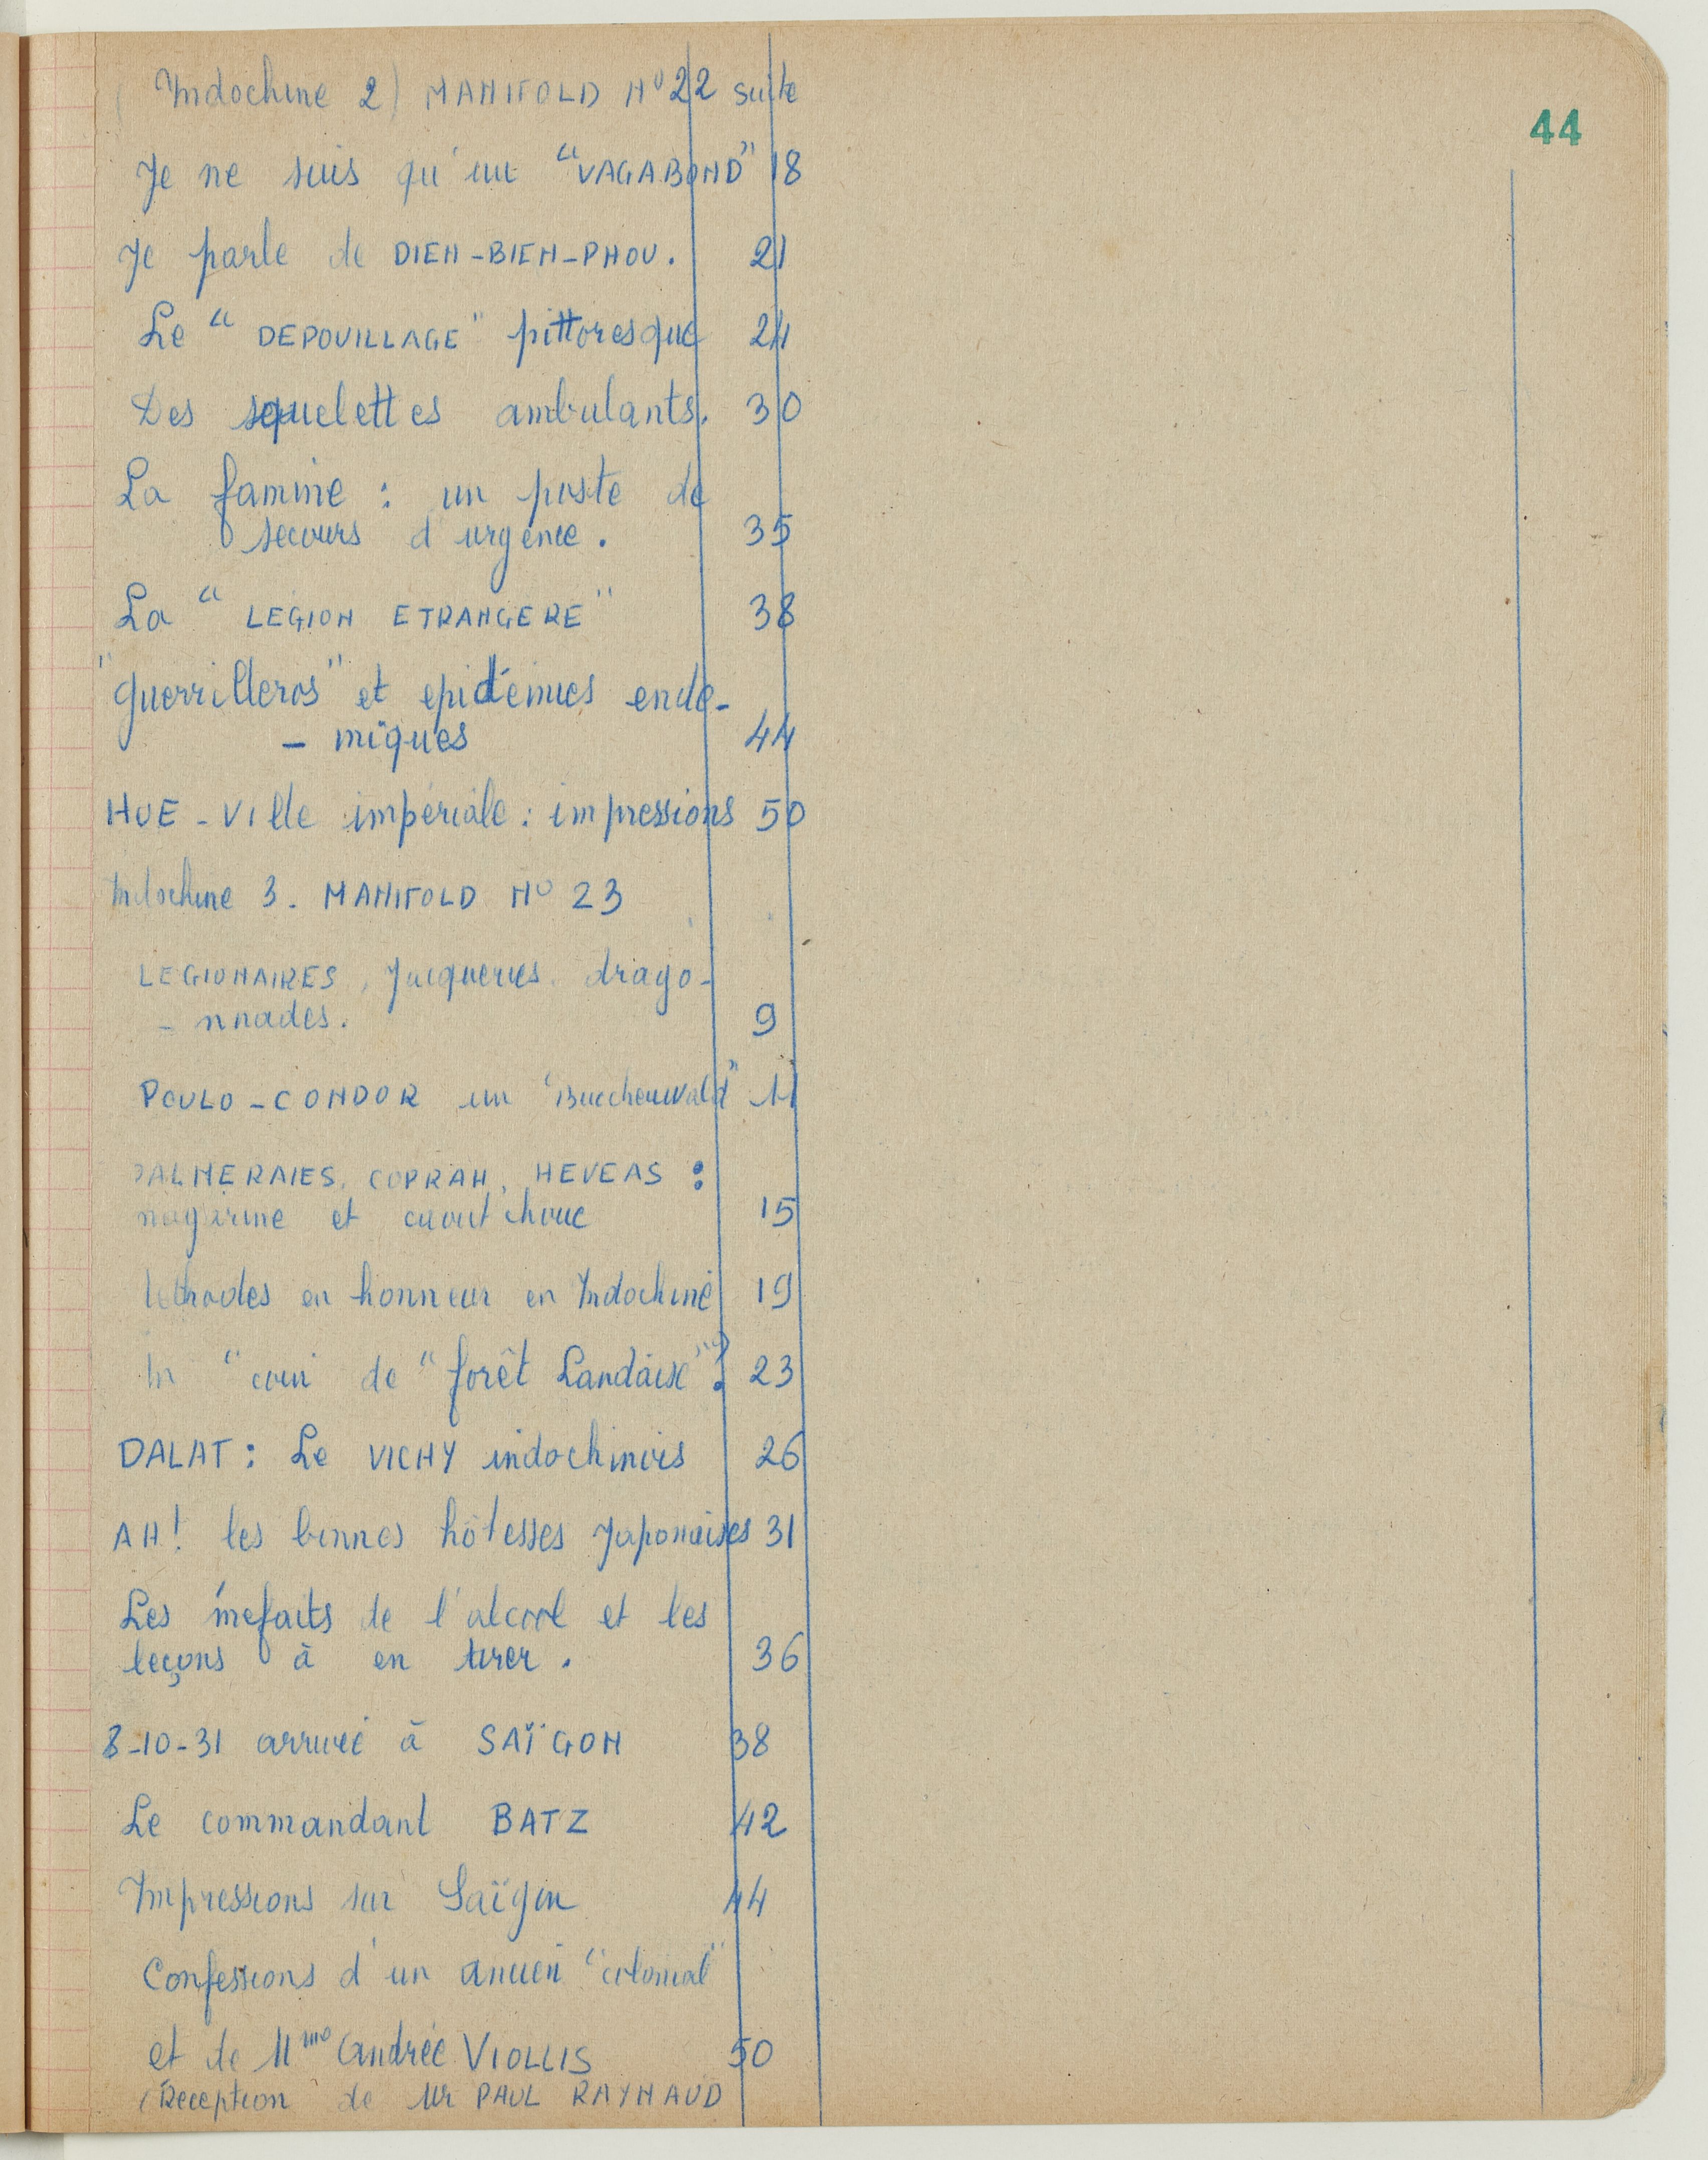 (Indochine 2) MANIFOLD N° 22 suite
44
Je ne suis qu'un "VAGABOND" 18
Je parle de DIEN-BIEN-PHOU. 21
Le "DEPOUILLAGE" pittoresque 24
Des squelettes ambulants. 30
La famine : un poste de
secours d'urgence. 35
La "LEGION ETRANGERE" 38
"Guerrilleros" et epidémies endé-
- miques 44
HUE - Ville impériale : impressions 50
Indochine 3. MANIFOLD N° 23
LEGIONAIRES, Jacqueries. drago-
- nnades. 9
POULO-CONDOR un "Buechenwald" 11
PALMERAIES, COPRAH, HEVEAS :
et caoutchouc 15
en honneur en Indochine 19
"coin de "forêt Landaise"? 23
DALAT : Le VICHY indochinois 26
AH! les bonnes hôtesses Japonaises 31
Les méfaits de l'alcool et les
leçons à en tirer. 36
8-10-31 arrivée à SAÏGON 38
Le commandant BATZ 42
Impressions sur Saïgon 44
Confessions d'un ancien "colonial"
et de Mme Andrée VIOLLIS 50
(Reception de Mr PAUL RAYNAUD